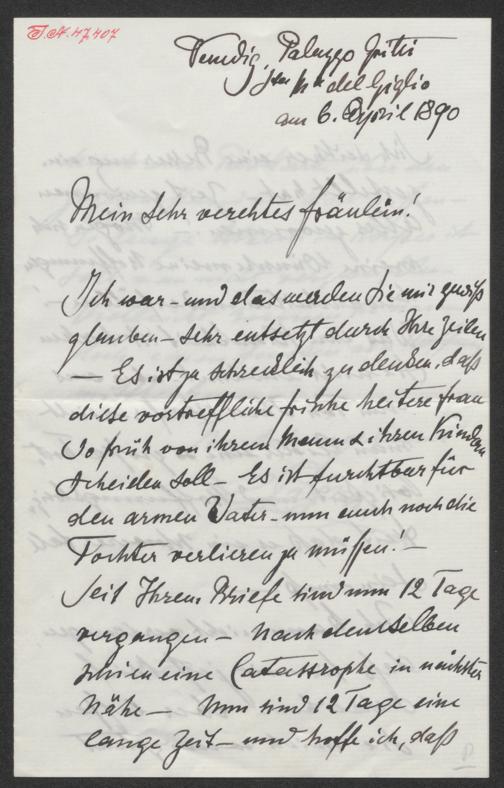 I. N. 47.407
Venedig, Palazzo Gritti
Sta Ma del Giglio
am 6. April 1890
Mein sehr verehrtes Fräulein!
Ich war – und das werden Sie mir gewiß
glauben – sehr entsetzt durch Ihre Zeilen
– Es ist zu schrecklich zu denken, daß
diese vortreffliche frische heitere Frau
so früh von ihrem Mann & ihren Kindern
scheiden soll – Es ist furchtbar für
den armen Vater – nun auch noch die
Tochter verlieren zu müssen! –
Seit Ihrem Briefe sind nun 12 Tage
vergangen – Nach demselben
schien eine Catastrophe in nächster
Nähe – Nun sind 12 Tage eine
lange Zeit – und hoffe ich, daß